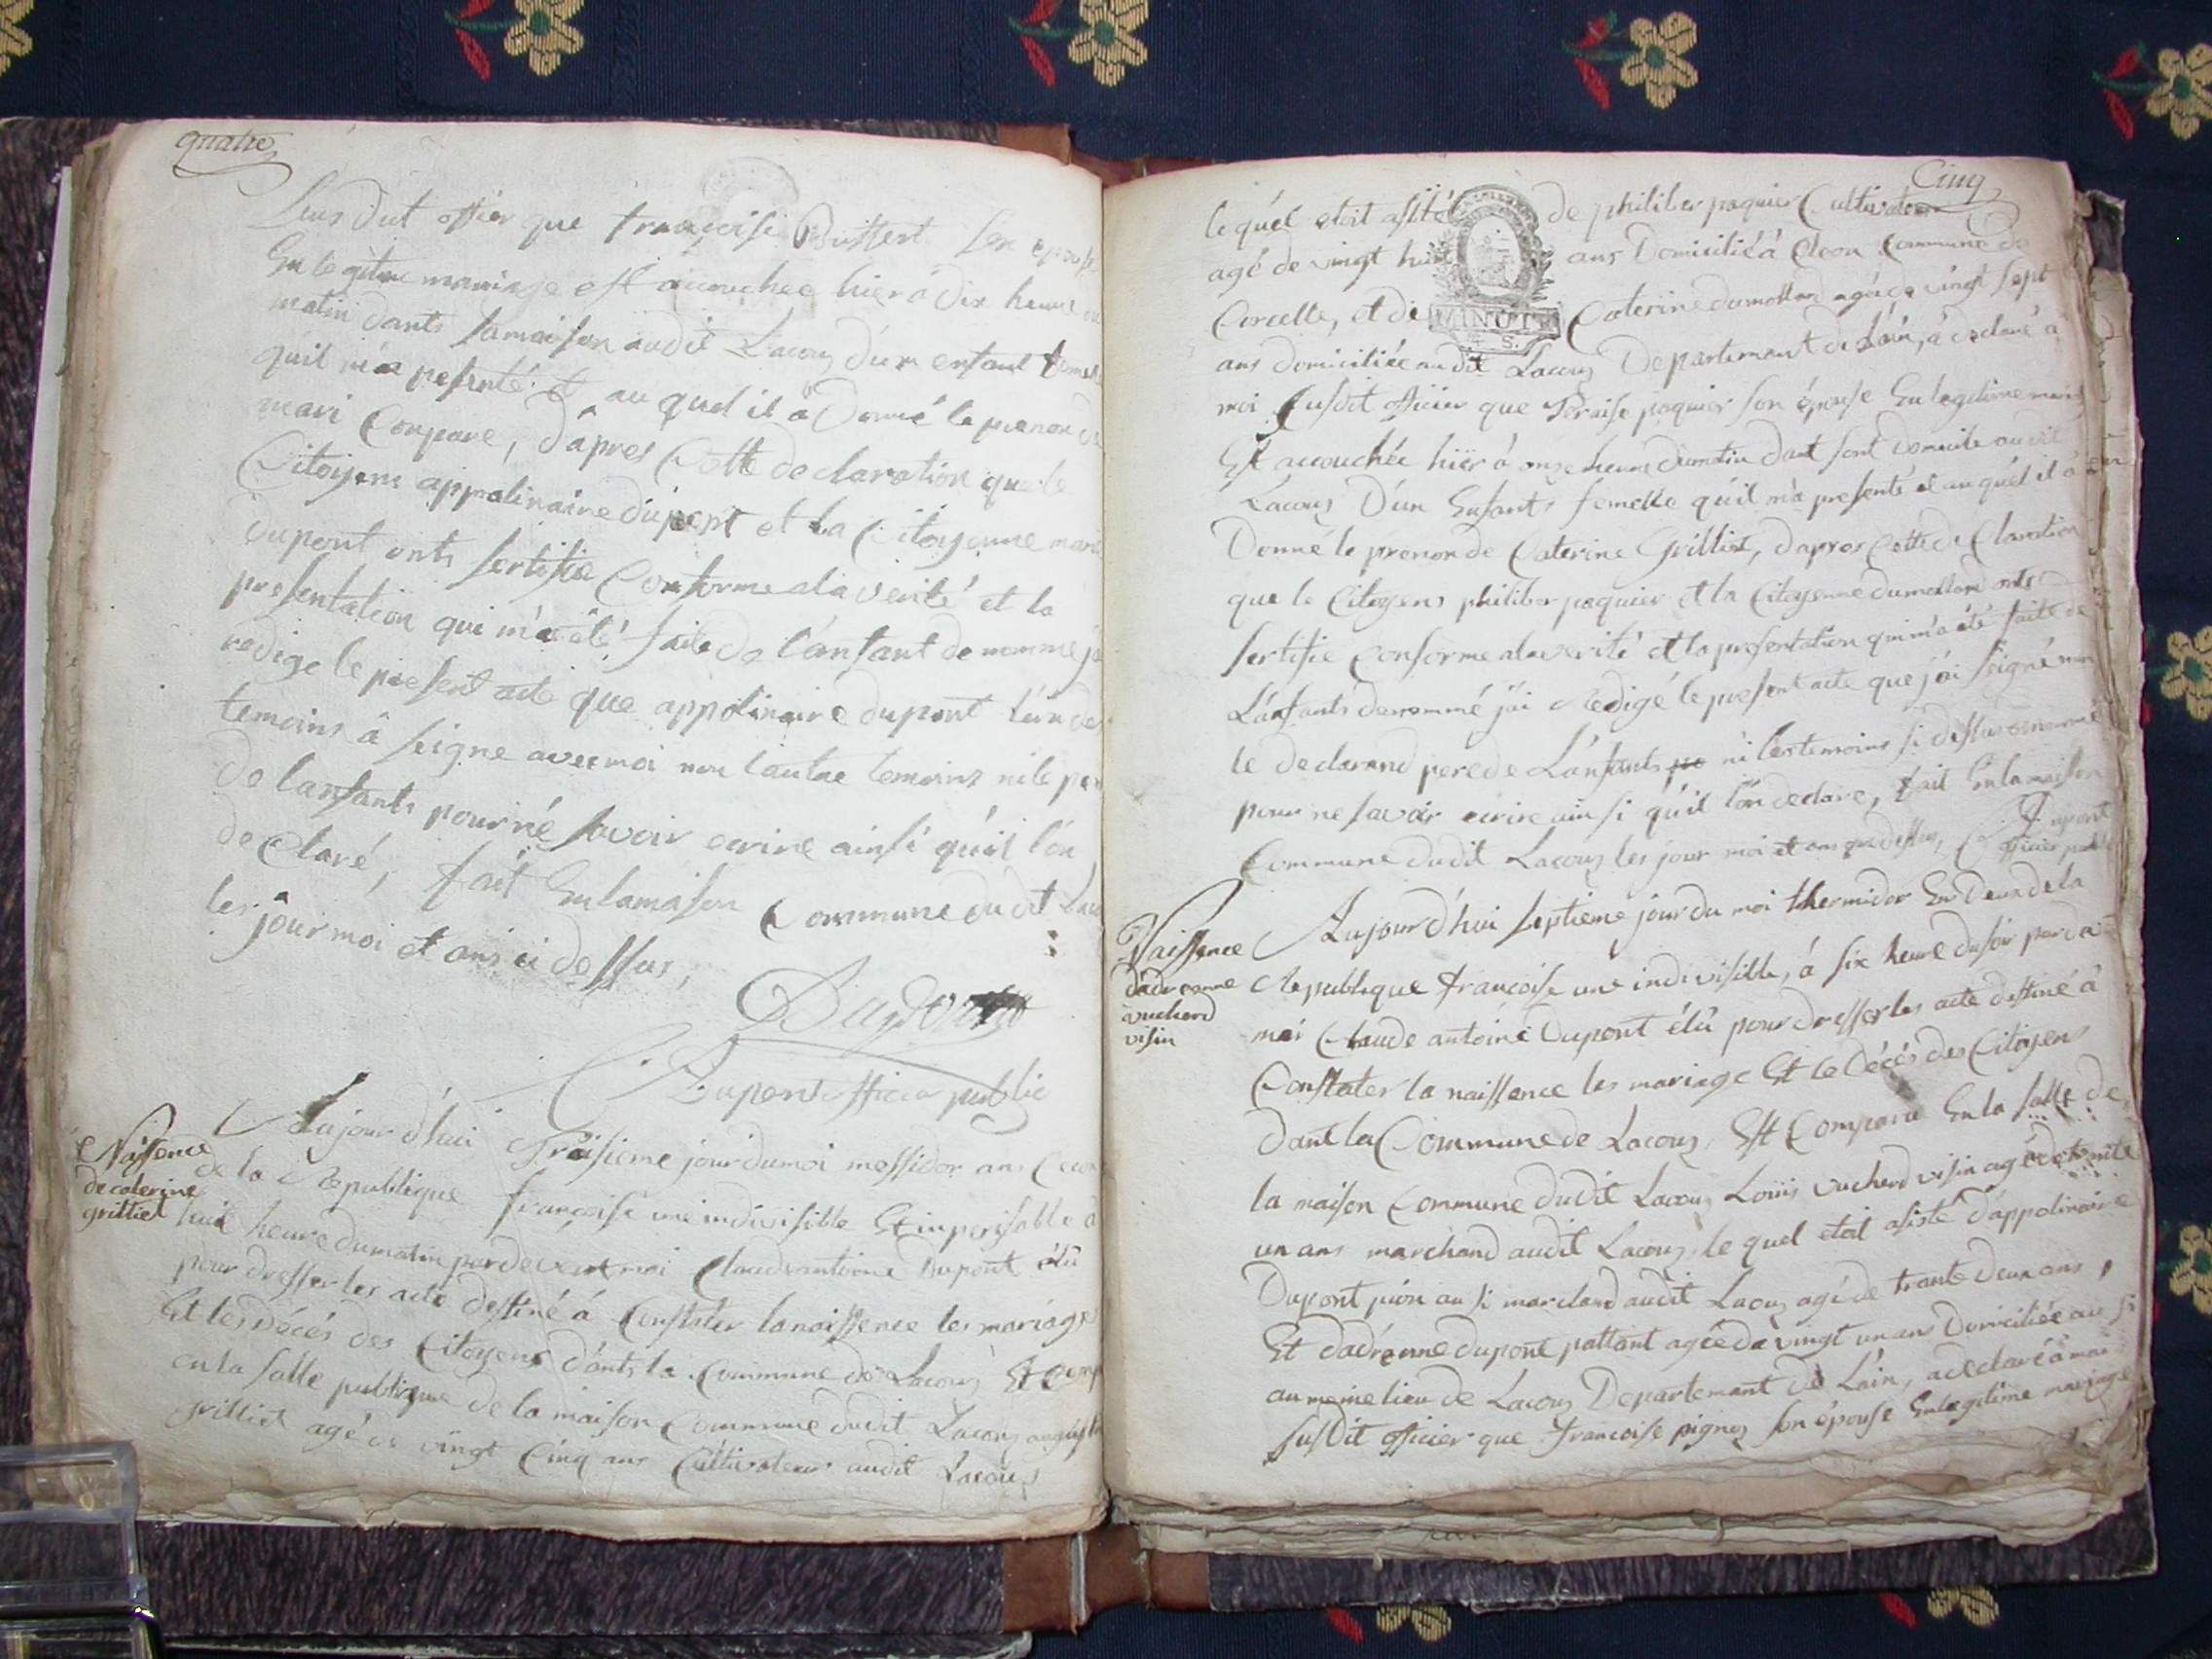 quatre
susdit offier que francoise Buffert son epouse
En legitime mariage est accouchee hier a dix heure du
matin dants sa maison audit Lacoux d'un enfant femelle
quil m'a pesenté et au quel il a Donné le prenon de
mari Conpare, d'apres Cette declaration que le
Citoyens appolinaire dupont et La Citoyenne mari
dupont onts sertifie Conforme a la verité et la
presentation qui m'a été faite de l'ansant denommé j'ai
redige le present acte que appolinaire dupont l'un des
temoins â seigne avec moi non l'autre temoins ni le pere
de lansants pour né savoir ecrire ainsi quil l'on
declaré, fait En lamaison Commune dudit Lacoux
les jour moi et ans ci dessus,
Dupont
C A Dupont officier public
Naissence
de caterine
grilliet
Aujourd'hui Troisieme jour dumoi messidor ans
de la Republique francoise une indivisible Et imperisable a
huit heure dumatin pardevent moi Claude antoine Dupont élû
pour dresser les acte destiné á Constater lanaissence les mariages
Et les Décés des Citoyens d'ants la Commune de Lacoux Est
en la salle publique de la maison Commune dudit Lacoux
grilliet agé de vingt Cinq ans Cultivateur audit Lacoux
Cinq
le quél etoit asisté de philiber paquier Cultivateur
agé de vingt huit ans Domicilié á Cleon Commune de
Corcelle, et de Caterine dumollard agée de vingt sept
MINUTE
ans domiciliée audit Lacoux Departement de Láin, á declaré a
moi susdit officier que Peraise paquier son épouse En legitime
Est accouchée hiër á onze heure dumatin dant sont domicile audit
Lacoux D'un Enfants femelle qu'il m'a presenté et au quél il á
Donné le prenon de Caterine Grilliet, dapres Cette de Claration
que le Citoyens philiber paquier et la Citoyenne dumollard onts
sertifie Conforme alaverité et la presentation qui m'a été faite de
L'anfants denommé j'ai Redigé le present acte que j'ai seigné non
le declarand pere de L'anfants ni les temoins si dessus denommé
pour ne savoir ecrire ainsi qu'il l'on declare, fait En la maison
Commune dudit Lacoux les jour moi et ans que dessus, C A Dupont
officier public
Naissence
dadrienne
vuchard
visin
Aujourd'hui septieme jour du moi thermidor En Deux de la
Republique francoise une indivisible, á six heure dusoir par de
moi Claude antoine Dupont élû pour dresser les acte destiné â
Constater la naissence les mariage Et le Décés des Citoyens
dant la Commune de Lacoux, Est Comparu En la salle de
la maison Commune dudit Lacoux Loüis vuchard visin agé de trente
un ans marchand audit Lacoux, le quel etoit asisté d'appolinaire
Dupont aussi marchand audit Lacoux agé de trante deux ans,
Et d'adrienne dupont agée de vingt un ans Domiciliée aussi
au meine lieu de Lacoux Departemant de Láin, a declaré á moi
susdit officier que francoise pignoz son épouse En legitime mariage